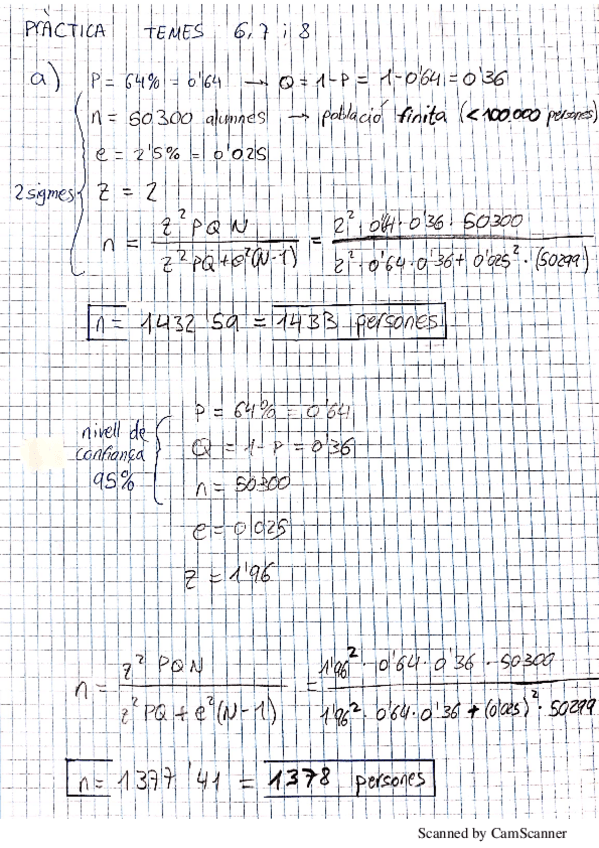 PRÀCTICA TEMES 6, 7 i 8
a) P = 64% = 0'64 → Q = 1 - P = 1 - 0'64 = 0'36
n = 50300 alumnes → població finita (< 100.000 persones)
e = 2'5% = 0'025
2 sigmes
z = 2
n = z² P Q N / z² PQ + e² (N-1) = 2² · 0'64 · 0'36 · 50300 / 2² · 0'64 · 0'36 + 0'025² · (50299)
n = 1432'59 = 1433 persones
nivell de confiança 95%
P = 64% = 0'64
Q = 1 - P = 0'36
n = 50300
e = 0'025
z = 1'96
n = z² PQN / z² PQ + e² (N-1) = 1'96² · 0'64 · 0'36 · 50300 / 1'96² · 0'64 · 0'36 + (0'025)² · 50299
n = 1377'41 = 1378 persones
Scanned by CamScanner